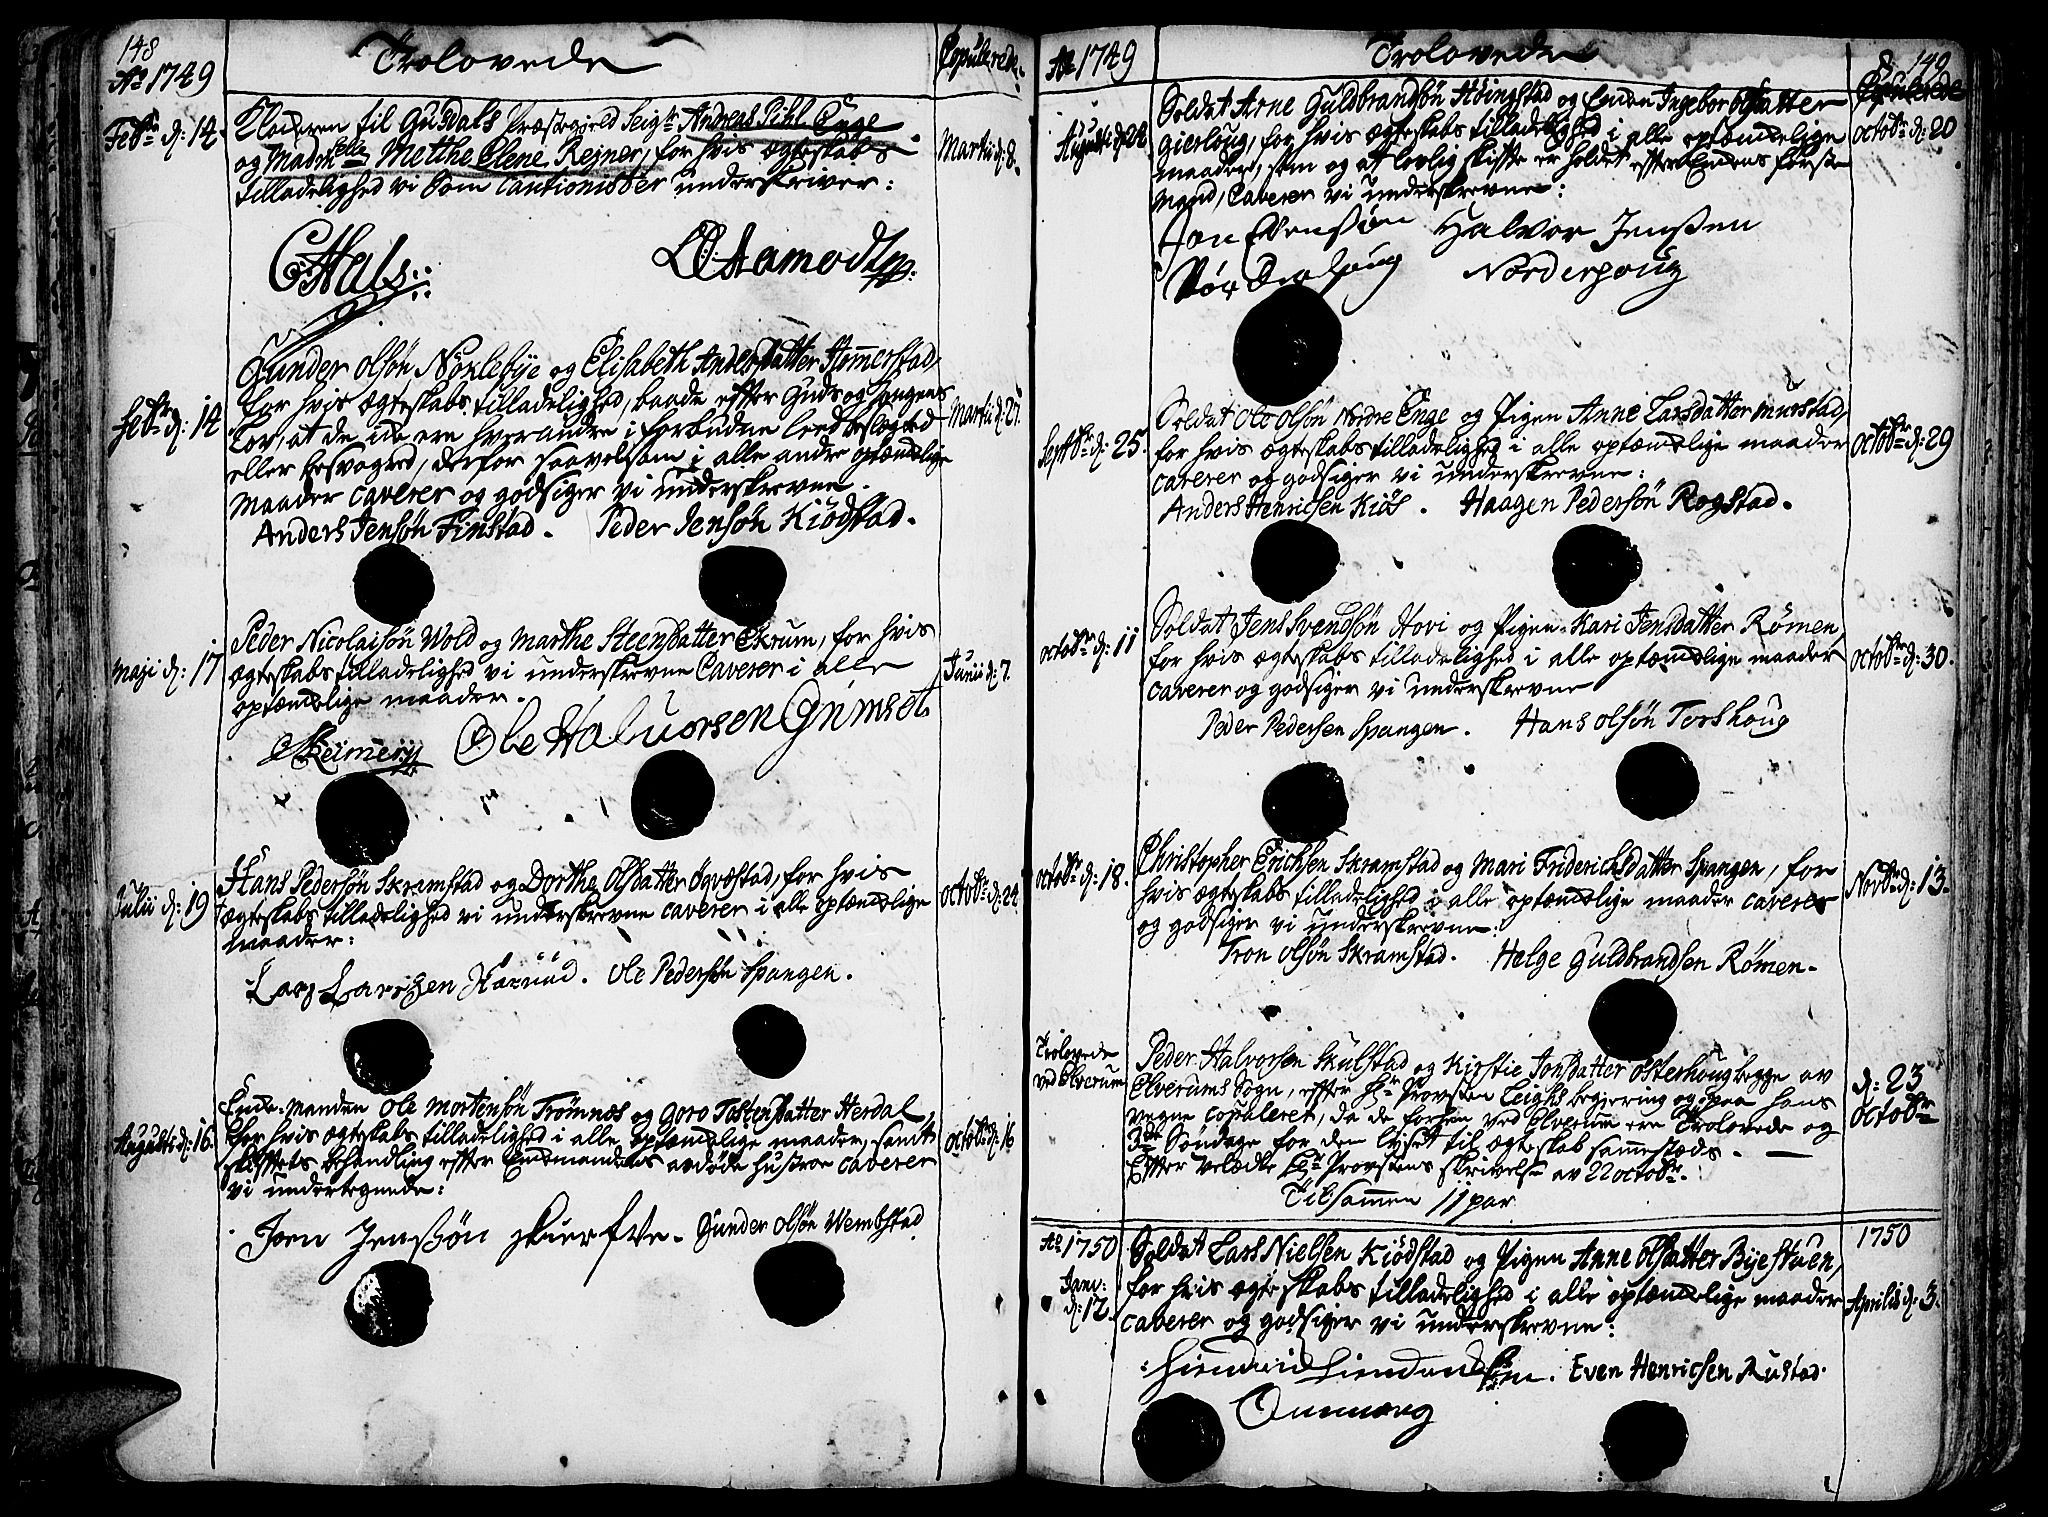 148
Ao 1749
Trolovede
Copulerede.
Febr: d: 14.
Klocheren til Gusdals Præstegield Seigr Andreas Pihl Enge
og Madmselle Metthe Elene Rejner, for hvis ægteskabs
tilladelighed vi Som Cautionister underskriver:
Martii d: 8.
CHals
Febr: d: 14
Gunder Olsøn Noxlebye og Elisabeth Andersdatter Hommerstad,
for hvis ægteskabs tilladelighed, baade efter Guds og Kongens
Lov, at de icke ere hverandre i forbudne leed beslegted
eller besvogred, derfor saavelsom i alle andre optænckelige
Maader caverer og godsiger vi underskrevne.
Martii d: 25
Anders Jensøn Finstad. Peder Jensøn Kiødstad.
Maji d: 17
Peder Nicolaisøn Wold og Marthe Steensdatter Ekrum, for hvis
ægteskabs tilladelighed vi underskrevne Caverer i alle
optænckelige maader.
Junii d: 7.
Ole Haluorsen Grimset
Julii d: 19
Hans Pedersøn Skramstad og Dorthe Olsdatter Øgvestad, for hvis
ægteskabs tilladelighed vi underskrevne caverer i alle optænckelige
maader:
Octobr: d: 24.
Lars Larsen Ole Pedersøn Spangen.
Augusti d: 16.
Encke-Manden Ole Mortensøn Trømnæs og Goro Tostensdatter Herdal,
for hvis ægteskabs tilladelighed i alle optænckelige maader, samt
skiftets behandling efter Enckemandens avdøde Hustroe caverer
vi undertegnede:
Octobr: d: 16
Joen Jenssøn Gunder Olsøn Wembstad
Ao 1749
Trolovede
149
Copulerede
Augusti d: 22
Soldat Arne Guldbrandsøn Høingstad og Encken Ingebor Olsdatter
Gierloug, for hvis ægteskabs tilladelighed i alle optænckelige
maader, som og at lovlig skifte er holdet efter Enckens første
Mand, Caverer vi underskrevne:
Octobr: d: 20
Jon Evensøn Halvor Jenssen
Norderhoug
Septbr: d: 25.
Soldat Ole Olsøn Nordre Enge og Pigen Anne Larsdatter Murstad,
for hvis ægteskabs tilladelighed i alle optænckelige maader
caverer og godsiger vi underskrevne:
Octobr: d: 29
Anders Henricsen Kiøs. Haagen Pedersøn Rogstad.
Octobr: d: 11
Soldat Jens Svendsøn Hovi og Pigen Kari Jensdatter Rømen,
for hvis ægteskabs tilladelighed i alle optænckelige maader
caverer og godsiger vi underskrevne
Octobr: d: 30.
Peder Pedersen Spangen. Hans Olsøn Torshoug
Octobr: d: 18.
Christopher Erichsen Skramstad og Mari Friderichsdatter Spangen, for
hvis ægteskabs tilladelighed i alle optænckelige maader caverer
og godsiger vi underskrevne:
Novbr: d: 13.
Tron Olsøn Skramstad. Helge Guldbrandsen Rømen.
Trolovede
ved Elverum
Peder Halvorsen Skulstad og Kirstie Jonsdatter Osterhoug begge av
Elverums Sogn, efter Hr Provsten Leighs begiering og paa hans
vegne Copulerer, da de forhen ved Elverum ere Trolovede og
3de Søndage for den lyset til ægteskab sammestæds. —
Efter velædle Hr Provstens skrivelse av 22 octobr:
d: 23
Octobr
Tilsamen 11 par
Ao 1750
Janr:
d: 12.
Soldat Lars Nielsen Kiødstad og Pigen Anne Olsdatter Byestuen,
for hvis ægteskabs tilladelighed i alle optænckelige maader
caverer og godsiger vi underskrevne:
1750
Aprilis d: 3.
Even Henricsen Rustad.